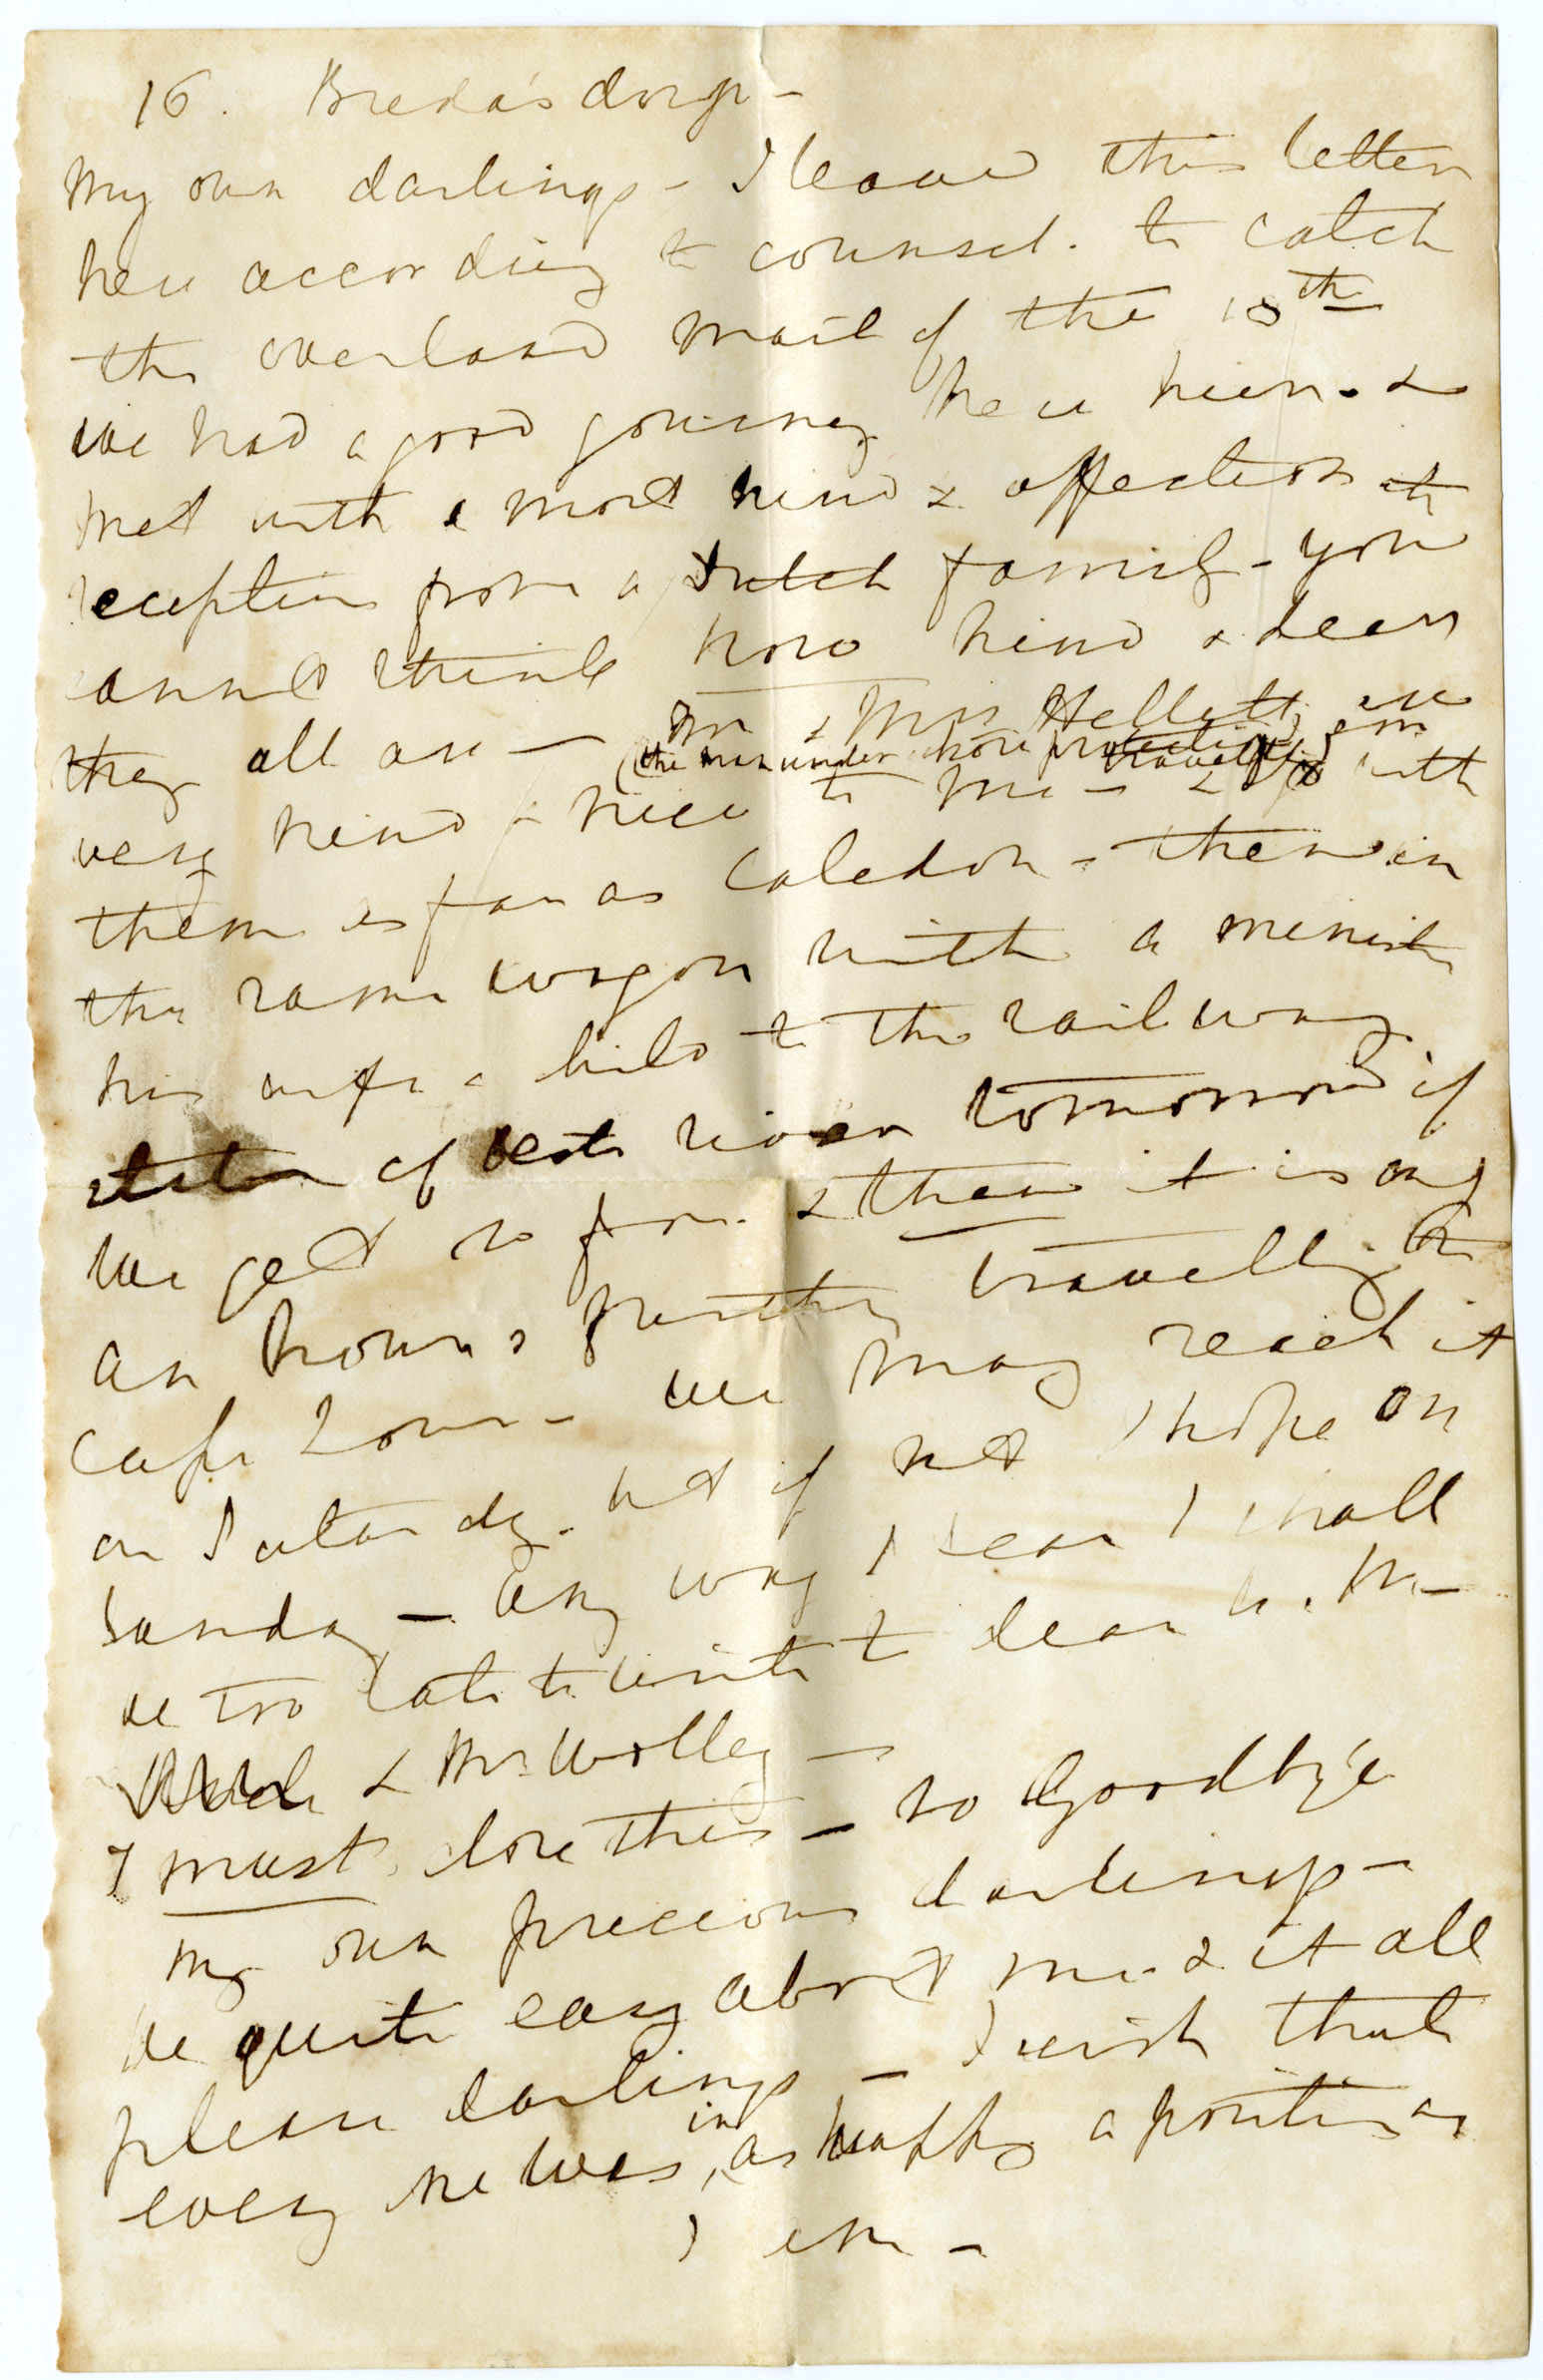 16. Breda'sdorp -
My own darlings - I leave this letter
here according to counsel. to catch
the overland mail of the 18th
We had a good journey here &
met with a most kind & affectionate
reception from a Dutch family - you
cannot think how kind & dear
they all are - Mr & Mrs Hallett are
(the man under whose protection I am travelling)
very kind & nice to me - & go with
them as far as Caledon - then in
the same wagon with a minister
his wife & child to the railway
station of Eerste river tomorrow if
we get so far. & then it is only
an hours further travelling to
Cape Town - we may reach it
on Saturday. but if not I hope on
Sunday - Any way I fear I shall
be too late to write to dear
& Mr Wolley -
I must close this - so Goodbye
my own precious darlings -
be quite easy about me & it all
please darlings - I wish that
every one was in as happy a position as
I am -